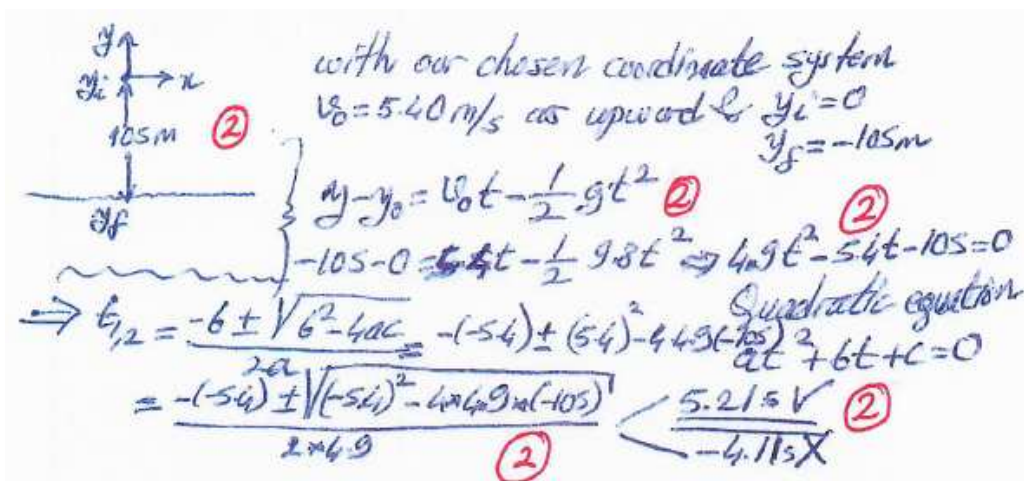 y
yi
x
105m
②
yf
with our chosen coordinate system
v₀ = 5.40 m/s as upward & yi = 0
yf = -105m
y - y₀ = v₀t - 1/2 gt² ②
②
-105 - 0 = 5.4t - 1/2 9.8t² ⇒ 4.9t² - 5.4t - 105 = 0
Quadratic equation
at² + bt + c = 0
⇒ t₁,₂ = (-b ± √(b² - 4ac)) / 2a = -(-5.4) ± (5.4)² - 4 4.9(-105)
= (-(-5.4) ± √((-5.4)² - 4*4.9*(-105))) / 2*4.9
②
5.21s ✓
②
-4.11s X